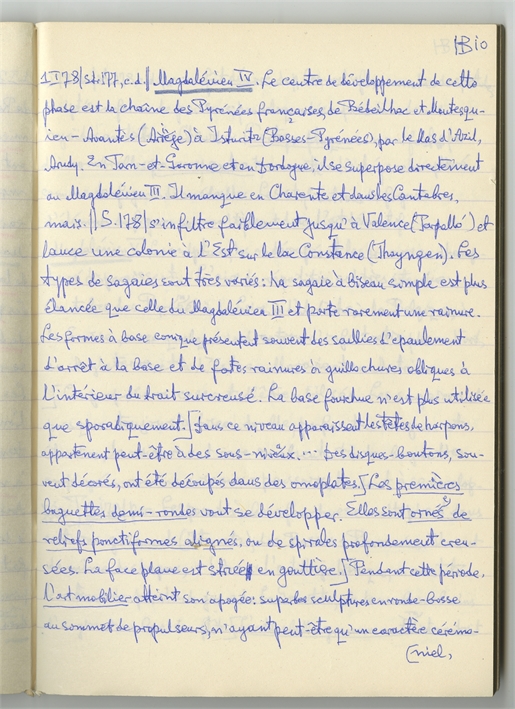 HB10
1 I 78/St.177, c.d.// Magdalénien IV. Le centre de développement de cette
phase est la chaîne des Pyrénées françaises, de Bébeilhac et Montesqu-
ieu-Avantès (Ariège) à Isturitz (Basses-Pyrénées), par le Mas d'Azil,
Arudy. En Tarn-et-Garonne et en Dordogne, il se superpose directement
au Magdalénien III. Il manque en Charente et dans les Cantabres,
mais //S.178/ s'infiltre faiblement jusqu'à Valence (Parpallo') et
lance une colonie à l'Est sur le lac Constance (Thayngen). Les
types de sagaies sont très variés: la sagaie à biseau simple est plus
élancée que celle du Magdalénien III et porte rarement une rainure.
Les formes à base conique présentent souvent des saillies d'épaulement
d'arrêt à la base et de fortes rainures à guillochures obliques à
l'intérieur du trait surcreusé. La base fourchue n'est plus utilisée
que sporadiquement.] Dans ce niveau apparaissent les têtes de harpons,
appartenant peut-être à des sous-niveaux. ... Des disques-boutons, sou-
vent décorés, ont été découpés dans des omoplates.] Les premières
baguettes demi-rondes vont se développer. Elles sont ornées de
reliefs ponctiformes alignés, ou de spirales profondément creu-
sées. La face plane est striée en gouttière.] Pendant cette période,
l'art mobilier atteint son apogée: superbes sculptures en ronde-bosse
au sommet de propulseurs, n'ayant peut-être qu'un caractère cérémo-
(niel,